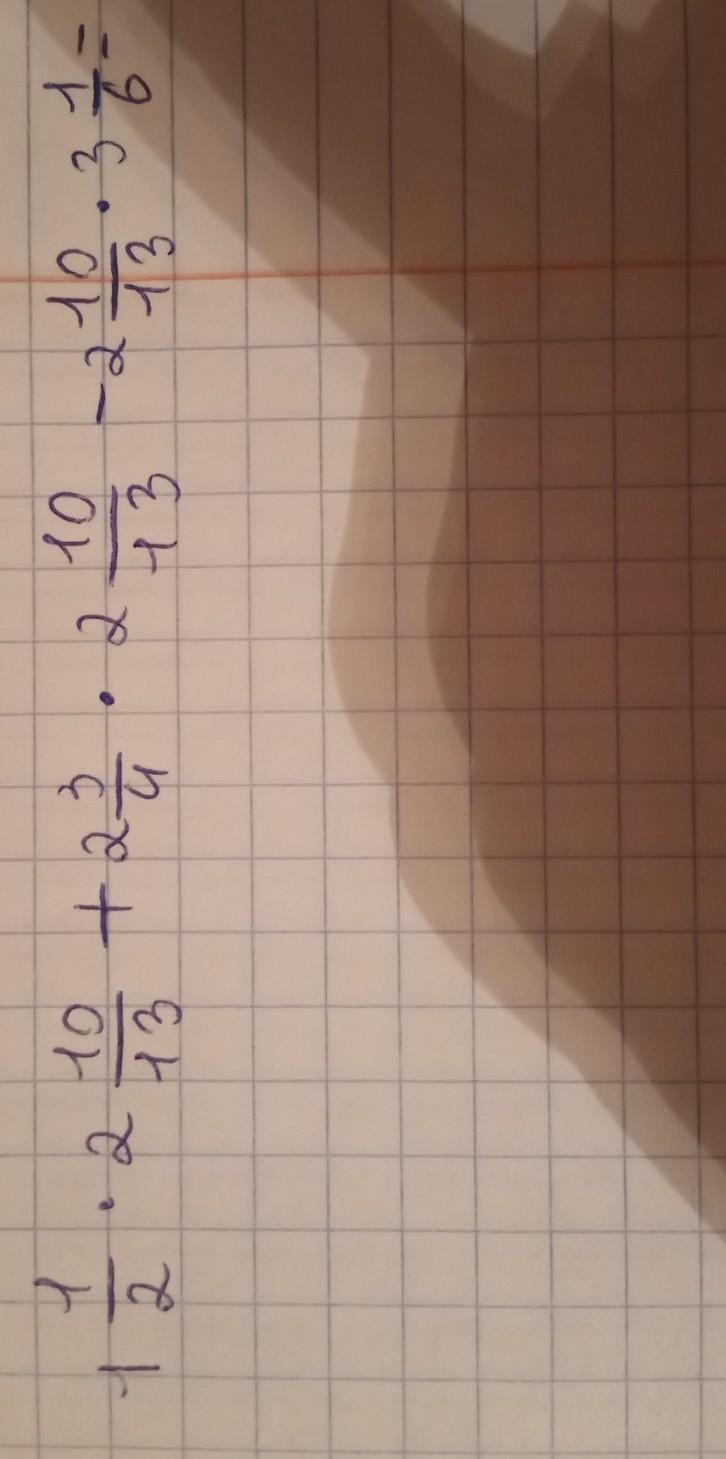 1 1/2 · 2 10/13 + 2 3/4 · 2 10/13 - 2 10/13 · 3 1/6 =